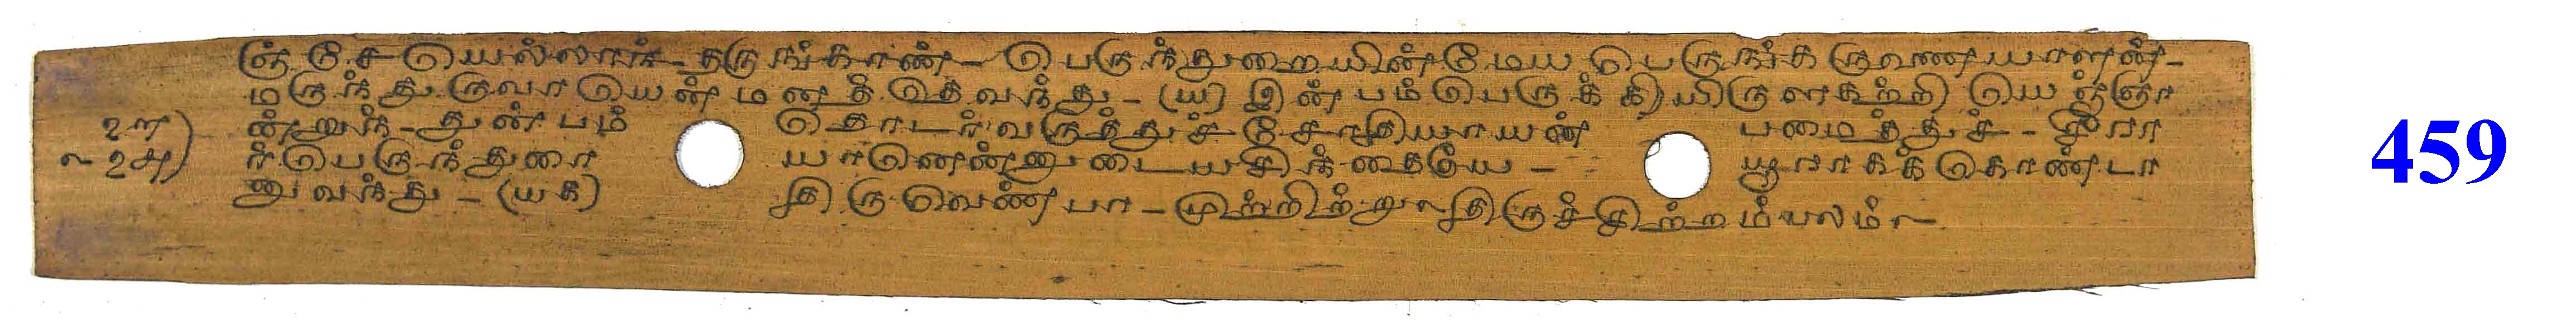 ஞ் சேயெல்லாந் - தருங்காண் - பெருந்துறையின்மேய பெருங்கருணையாளன் -
மருந்துருவாயென்மனத்தே வந்து - (ய) இன்பம்பெருக்கியிருளகற்றி யெஞ்ஞா
ன்றுந் - துன்பம் தொடர்வருத்துச்சோதியாயன் பமைத்துச் - சீரா
ர்பெருந்துரை யானென்னுடையசிந்தையே - யூராகக்கொண்டா
னுவந்து - (யக) திருவெண்பா - முற்றிற்று திருச்சிற்றம்பலம்
459